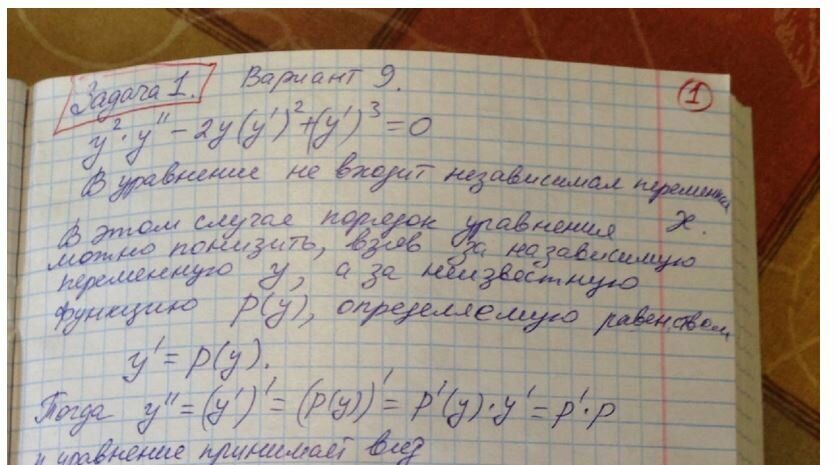 Задача 1. Вариант 9. 1
y²·y'' - 2y(y')² + (y')³ = 0
В уравнение не входит независимая переменная
x.
В этом случае порядок уравнения
можно понизить, взяв за независимую
переменную y, а за неизвестную
функцию p(y), определяемую равенством
y' = p(y).
Тогда y'' = (y')' = (p(y))' = p'(y)·y' = p'·p
и уравнение принимает вид